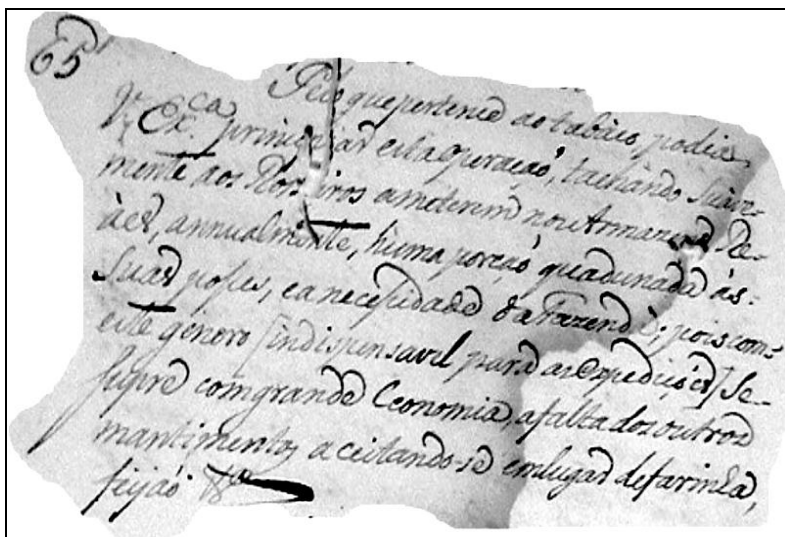 65
Pelo que pertence ao tabaco, podia
V. Ex.ca principiar esta operação, tachando suave-
mente aos Rosseiros a meterem nos Armazens Re-
aes, annualmente, huma porção quadunada ás
suas posses, e a necessidade da Fazenda; pois com
este genero [indispensavel para as expedições] se
supre com grande Economia, a falta dos outros
mantimentos aceitando-se em lugar de farinha,
feijaõ &ca